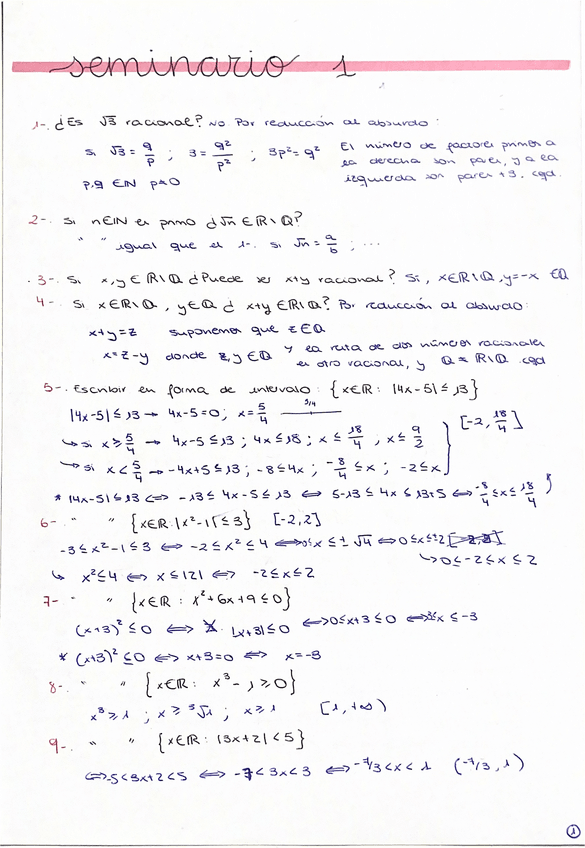 seminario 1
1-. ¿Es √3 racional? No. Por reducción al absurdo:
si √3 = q/p ; 3 = q²/p² ; 3p² = q² El número de factores primos a
la derecha son pares, y a la
p,q ∈ ℕ p≠0 izquierda son pares + 3. cqd.
2-. Si n∈ℕ es primo ¿√n ∈ ℝ\ℚ?
" " igual que el 1-. si √n = a/b ; ...
3-. Si x,y ∈ ℝ\ℚ ¿Puede ser x+y racional? Si, x∈ℝ\ℚ, y=-x ∈ℚ
4-. Si x∈ℝ\ℚ, y∈ℚ ¿ x+y ∈ℝ\ℚ? Por reducción al absurdo:
x+y=z suponemos que z∈ℚ
x=z-y donde z,y∈ℚ y la resta de dos números racionales
es otro racional, y ℚ ≠ ℝ\ℚ cqd
5-. Escribir en forma de intervalo: {x∈ℝ: |4x-5| ≤ 13}
|4x-5| ≤ 13 → 4x-5=0; x=5/4 5/4
↳ si x ≥ 5/4 → 4x-5 ≤ 13; 4x ≤ 18; x ≤ 18/4, x ≤ 9/2 [-2, 18/4]
↳ si x < 5/4 → -4x+5 ≤ 13; -8 ≤ 4x; -8/4 ≤ x; -2 ≤ x
* |4x-5| ≤ 13 ⟺ -13 ≤ 4x-5 ≤ 13 ⟺ 5-13 ≤ 4x ≤ 13+5 ⟺ -8/4 ≤ x ≤ 18/4
6-. " " {x∈ℝ: |x²-1| ≤ 3} [-2,2]
-3 ≤ x²-1 ≤ 3 ⟺ -2 ≤ x² ≤ 4 ⟺ 0 ≤ x ≤ ±√4 ⟺ 0 ≤ x ≤ ±2
↳ 0 ≤ -2 ≤ x ≤ 2
↳ x² ≤ 4 ⟺ x ≤ |2| ⟺ -2 ≤ x ≤ 2
7-. " " {x∈ℝ: x²+6x+9 ≤ 0}
(x+3)² ≤ 0 ⟺ |x+3| ≤ 0 ⟺ 0 ≤ x+3 ≤ 0 ⟺ x ≤ -3
* (x+3)² ≤ 0 ⟺ x+3=0 ⟺ x=-3
8-. " " {x∈ℝ: x³-1 ≥ 0}
x³ ≥ 1 ; x ≥ ³√1 ; x ≥ 1 [1, +∞)
9-. " " {x∈ℝ: |3x+2| < 5}
⟺ -5 < 3x+2 < 5 ⟺ -7 < 3x < 3 ⟺ -7/3 < x < 1 (-7/3, 1)
1